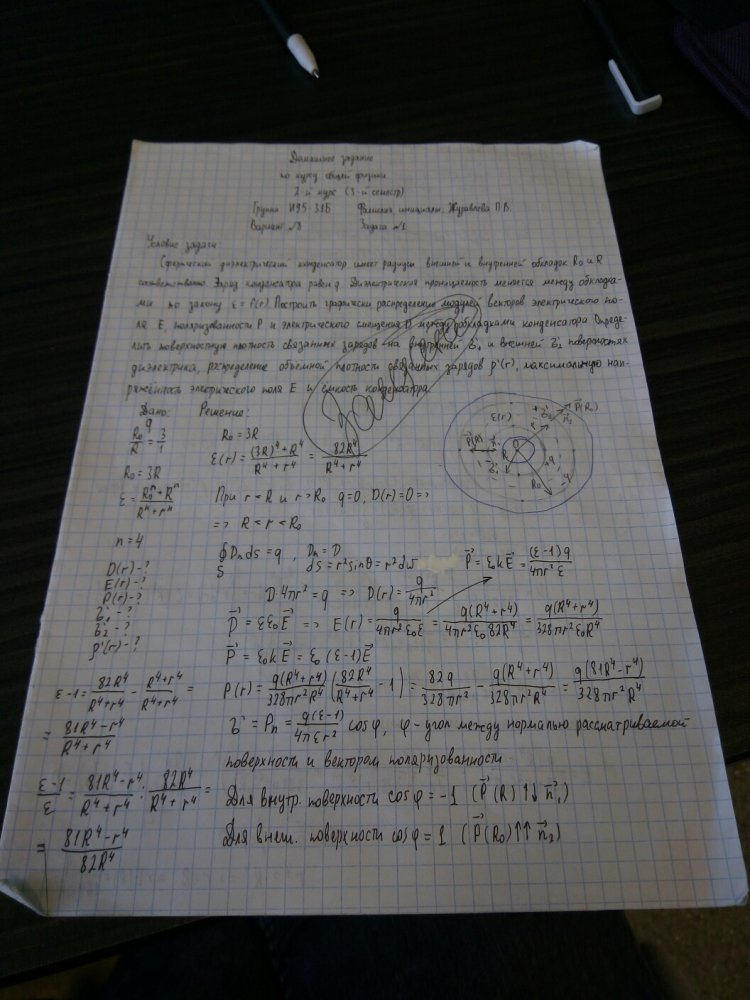 Домашнее задание
по курсу общей физики
2-й курс (3-й семестр)
Группа ИУ5-31Б Фамилия, инициалы: Журавлева П.В.
Вариант №8 Задача №1
Условие задачи:
Сферический диэлектрический конденсатор имеет радиусы внешней и внутренней обкладок R₀ и R
соответственно. Заряд конденсатора равен q. Диэлектрическая проницаемость меняется между обкладка-
ми по закону ε = f(r). Построить графически распределение модулей векторов электрического по-
ля E, поляризованности P и электрического смещения D между обкладками конденсатора. Опреде-
лить поверхностную плотность связанных зарядов на внутренней σ'₁ и внешней σ'₂ поверхностях
диэлектрика, распределение объемной плотности связанных зарядов ρ'(r), максимальную нап-
ряженность электрического поля E и емкость конденсатора.
Дано: Решение:
q
R₀/R = 3/1 R₀ = 3R
R₀ = 3R ε(r) = ((3R)⁴ + R⁴)/(R⁴ + r⁴) = 82R⁴/(R⁴ + r⁴)
ε = (R₀ⁿ + Rⁿ)/(Rⁿ + rⁿ) При r < R и r > R₀ q=0, D(r)=0 =>
n = 4 => R < r < R₀
D(r) - ? ∮DₙdS = q, Dₙ = D
E(r) - ? S dS = r²sinθ = r²dω
P⃗ = ε₀kE⃗ = (ε-1)q/(4πr²ε)
P(r) - ? D·4πr² = q => D(r) = q/(4πr²)
σ'₁ - ?
σ'₂ - ? D⃗ = εε₀E⃗ => E(r) = q/(4πr²ε₀ε) = q(R⁴+r⁴)/(4πr²ε₀82R⁴) = q(R⁴+r⁴)/(328πr²ε₀R⁴)
ρ'(r) - ? P⃗ = ε₀kE⃗ = ε₀(ε-1)E⃗
ε-1 = 82R⁴/(R⁴+r⁴) - (R⁴+r⁴)/(R⁴+r⁴) = P(r) = q(R⁴+r⁴)/(328πr²R⁴) (82R⁴/(R⁴+r⁴) - 1) = 82q/(328πr²) - q(R⁴+r⁴)/(328πr²R⁴) = q(81R⁴-r⁴)/(328πr²R⁴)
= (81R⁴-r⁴)/(R⁴+r⁴) σ' = Pₙ = q(ε-1)/(4πεr²) cosφ, φ - угол между нормалью рассматриваемой
поверхности и вектором поляризованности.
(ε-1)/ε = (81R⁴-r⁴)/(R⁴+r⁴) : 82R⁴/(R⁴+r⁴) = Для внутр. поверхности cosφ = -1 (P⃗(R)↑↓n⃗₁)
= (81R⁴-r⁴)/(82R⁴) Для внеш. поверхности cosφ = 1 (P⃗(R₀)↑↑n⃗₂)
ε(r)
P⃗(R₀)
P⃗(R)
R₀